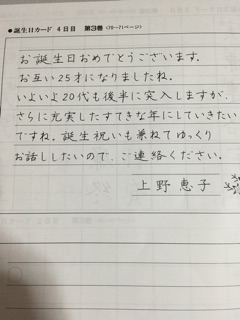 ●誕生日カード 4日目 第3巻(70~71ページ)
お誕生日おめでとうございます。
お互い25才になりましたね。
いよいよ20代も後半に突入しますが、
さらに充実したすてきな年にしていきたい
ですね。誕生祝いも兼ねてゆっくり
お話ししたいので、ご連絡ください。
上野恵子